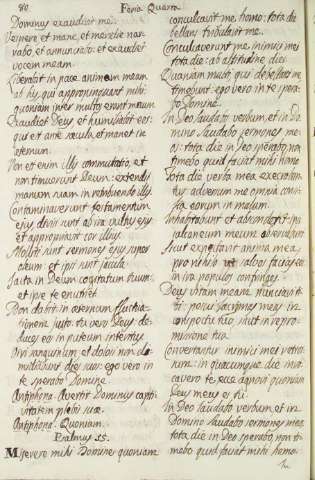 80. Feria Quarta.
Dominus exaudivit me.
Vespere et mane, et meridie nar-
rabo, et annunciabo: et exaudiet
vocem meam.
Liberabit in pace animam meam
ab hys, qui appropinquant mihi:
quoniam inter multos erant mecum
Exaudiet Deus et humiliabit eos:
qui est ante sæcula, et manet in
eternum.
Non est enim illis commutatio, et
non timuerunt Deum: extendit
manum suam in retribuendo illis
Contaminaverunt testamentum
ejus, divisi sunt ab ira vultus ejus
et appropinavit cor illius.
Molliti sunt sermones ejus super
oleum: et ipsi sunt jacula.
Jacta in Deum cogitatum tuum:
et ipse te enutriet.
Non dabit in eternum fluctua-
tionem justo. tu vero Deus de-
duces eos in puteum interitus
Viri sanguinum, et dolosi non di-
midiabunt dies suos: ego vero in
te sperabo Domine.
Antiphona. Avertit Dominus capti-
vitatem plebis suæ.
Antiphona. Quoniam.
Psalmus 55.
Miserere mihi Domine quoniam
conculcavit me homo: tota die
bellans tribulavit me.
Conculcaverunt me inimici mei
tota die: ab altitudine diei
Quoniam multi qui debellant me
timebunt: ego vero in te spera-
bo Domine.
In Deo laudabo verbum, et in Do-
mino laudabo sermones me-
os: tota die in Deo sperabo, non
timebo quid faciat mihi homo
Tota die verba mea execraban-
tur adversum me omnia consi-
lia eorum in malum.
Inhabitabunt et abscondent ipsi
calcaneum meum observabunt
Sicut expectavit anima mea,
pro nihilo salvos facies eos
in ira populos confringes.
Deus vitam meam nunciavi ti-
bi: posui lacrymas meas in
conspectu tuo, sicut in repro-
missione tua.
Convertentur inimici mei retror-
sum: in quacunque die inu-
cavero te ecce agnovi quoniam
Deus meus es tu.
In Deo laudabo verbum, et in
Domino laudabo sermones meos,
tota die in Deo sperabo, non ti-
mebo quid faciat mihi homo.